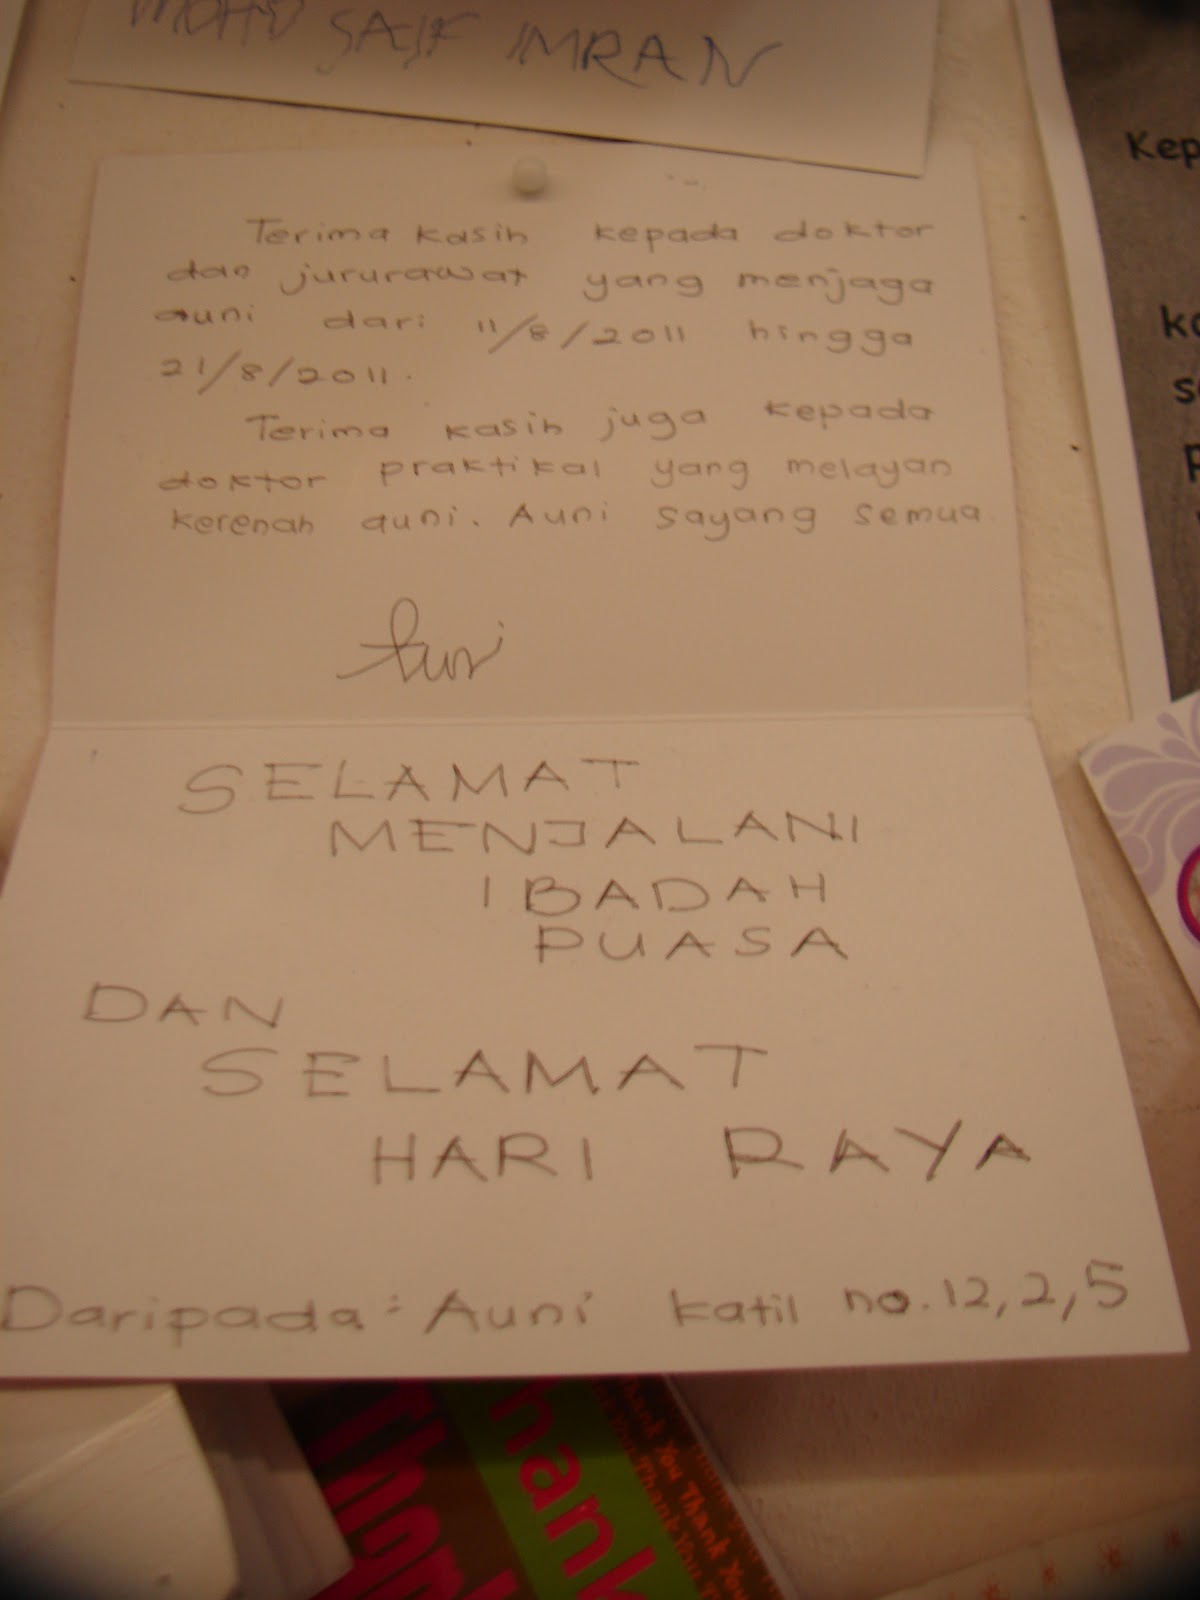 MOHD SAIF IMRAN
Terima kasih kepada doktor
dan jururawat yang menjaga
auni dari 11/8/2011 hingga
21/8/2011.
Terima kasih juga kepada
doktor praktikal yang melayan
kerenah auni. Auni sayang semua.
Auni
SELAMAT
MENJALANI
IBADAH
PUASA
DAN
SELAMAT
HARI RAYA
Daripada : Auni katil no. 12, 2, 5
Kep
ka
Thank
hank
Thank You Thank You
Thank You